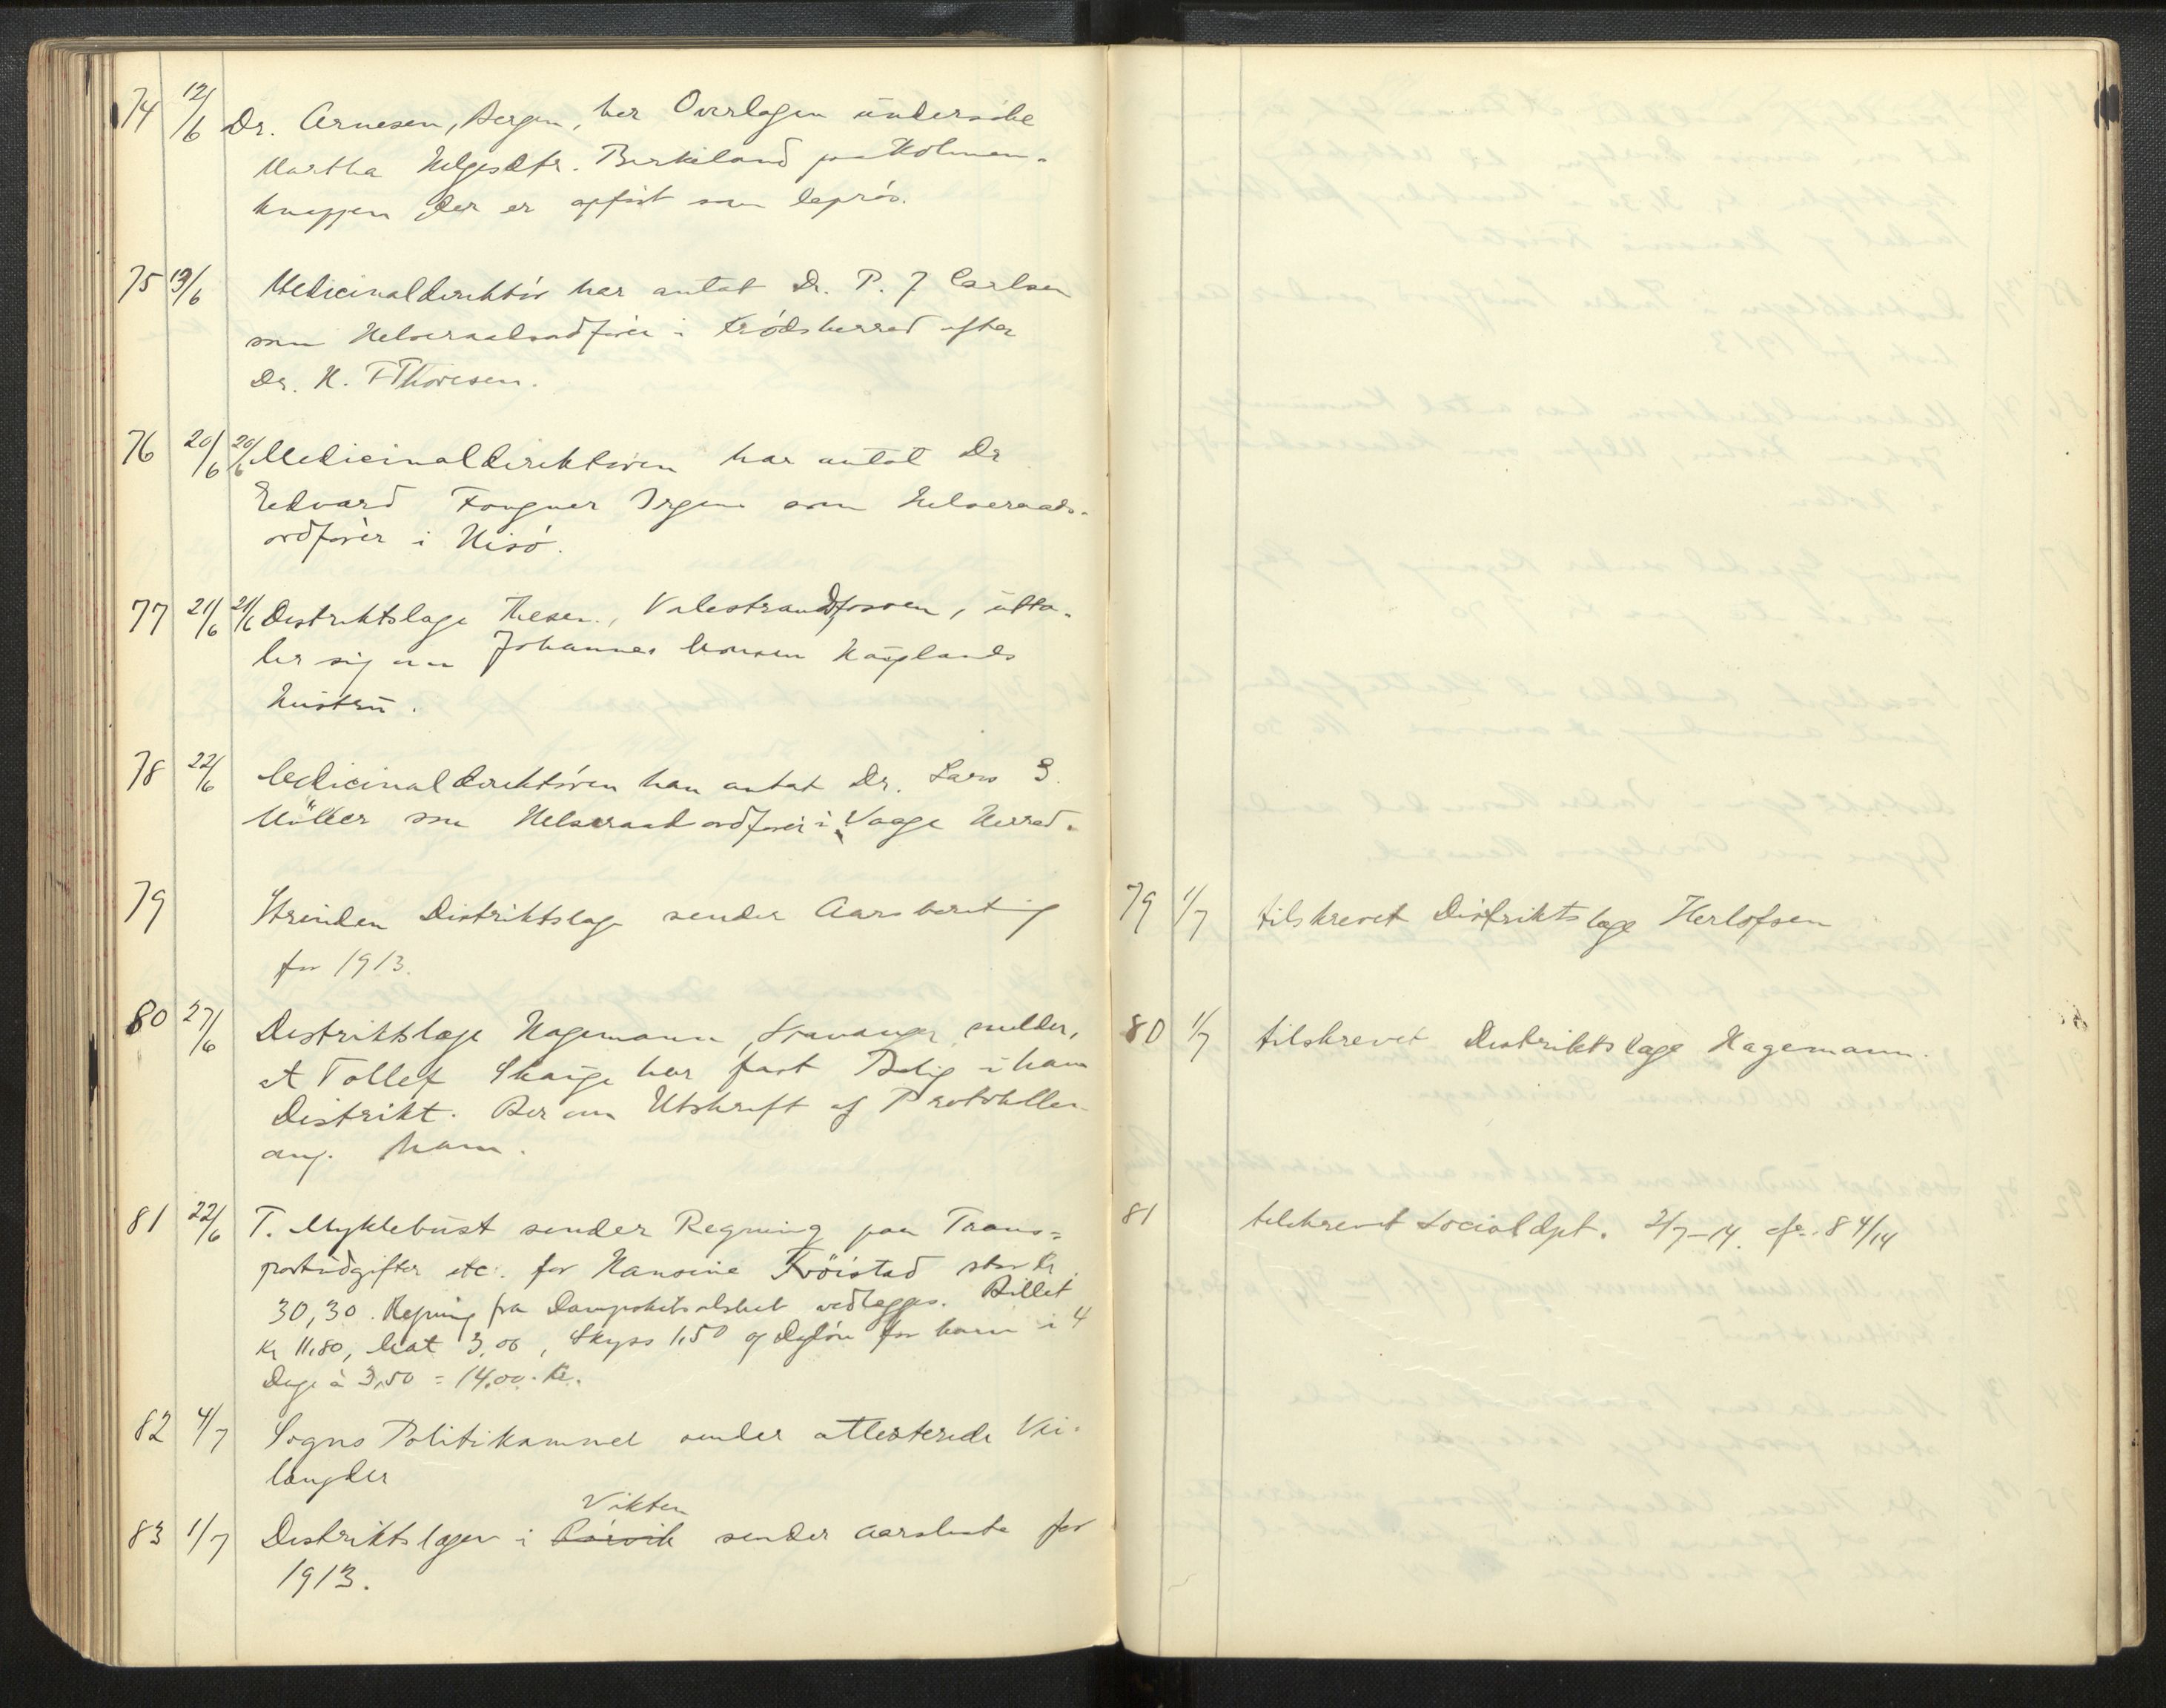 74 12/6 Dr. Arnesen, Bergen, ber Overlægen undersöke
Martha Helgesdtr. Birkeland paa Holmen-
knappen der er opfört som leprös.
75 19/6 Medicinaldirektör har antat Dr. P. J. Carlsen
som Helseraadsordförer i Krödsherred efter
Dr. H. F Thoresen.
76 20/6 20/6 Medicinaldirektören har antat Dr
Edvard Fougner Irgens som Helseraads-
ordförer i Hisö.
77 21/6 21/6 Distriktslæge Thesen, Valestrandsfossen, utta-
ler sig om Johannes Monsen Hauglands
Hustru.
78 22/6 Medicinaldirektören har antat Dr. Lars S.
Möller som Helseraadsordförer i Vaage Herred.
79 Strinden Distriktslæge sender Aarsberetning
for 1913.
80 27/6 Distriktslæge Hagemann, Stavanger, melder,
at Tollef Skauge har fast Bolig i hans
Distrikt. Ber om Utskrift af Protokollen
ang. ham.
81 22/6 T. Myklebust sender Regning paa Trans=
portudgifter etc. for Hansine Fröistad stor Kr.
30,30. Regning fra Dampskibsselskab vedlegges. Billet
Kr 11,80, Mat 3,00, Skyss 1,50 og Daglön for ham i 4
Dage à 3,50 = 14,00. Kr.
82 4/7 Sogns Politikammer sender attesterede Vei-
længder
83 1/7 Distriktslægen i Rörvik Vikten sender Aarsliste for
1913.
79 1/7 tilskrevet Distriktslæge Herlofsen
80 1/7 tilskrevet Distriktslæge Hagemann.
81 tilskrevet Socialdpt. 2/7-14. cfr. 84/14